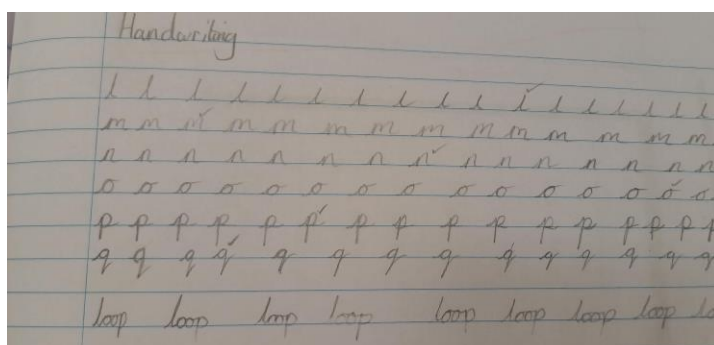 Handwriting
l l l l l l l l l l l l l l l l l
m m m m m m m m m m m m m m
n n n n n n n n n n n n n n n
o o o o o o o o o o o o o o o
p p p p p p p p p p p p p p p p
q q q q q q q q q q q q q q
loop loop loop loop loop loop loop loop lo